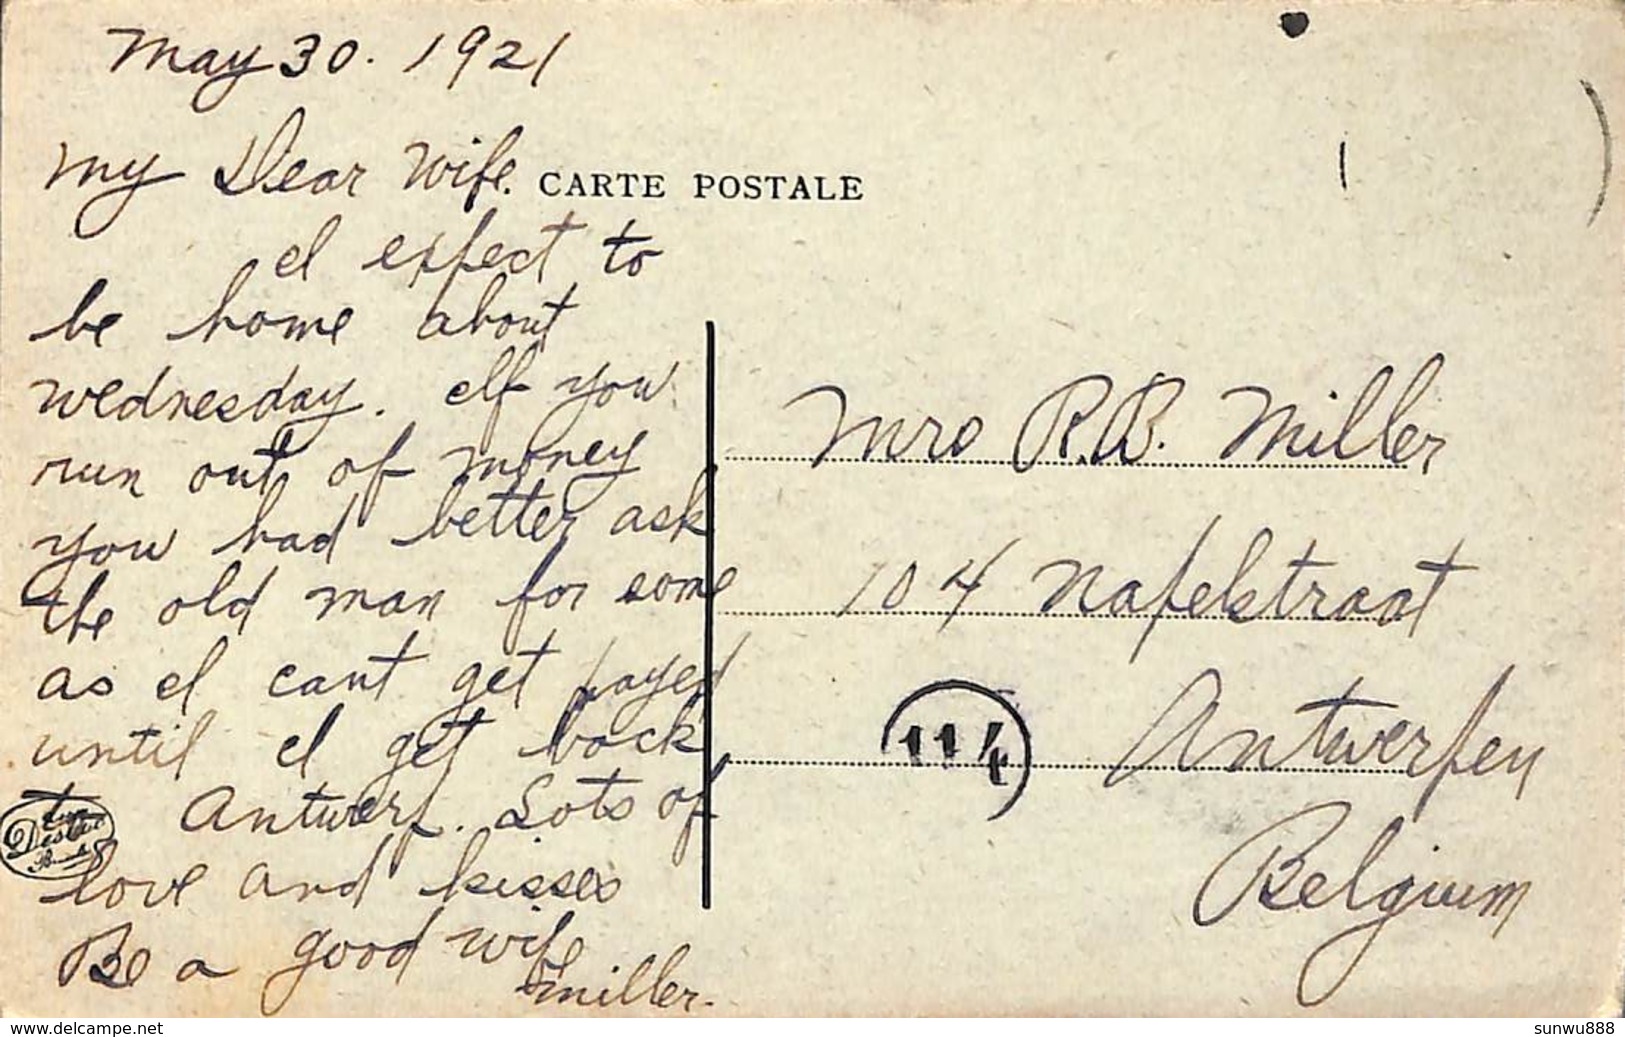 May 30. 1921
My Dear Wife.
CARTE POSTALE
I expect to
be home about
Wednesday. If you
run out of money
you had better ask
the old man for some
as I cant get payed
until I get back
to Antwerp. Lots of
love and kisses
Be a good wife
Miller.
Mrs R.B. Miller
104 Nafelstraat
Antwerpen
Belgium
114
www.delcampe.net
sunwu888